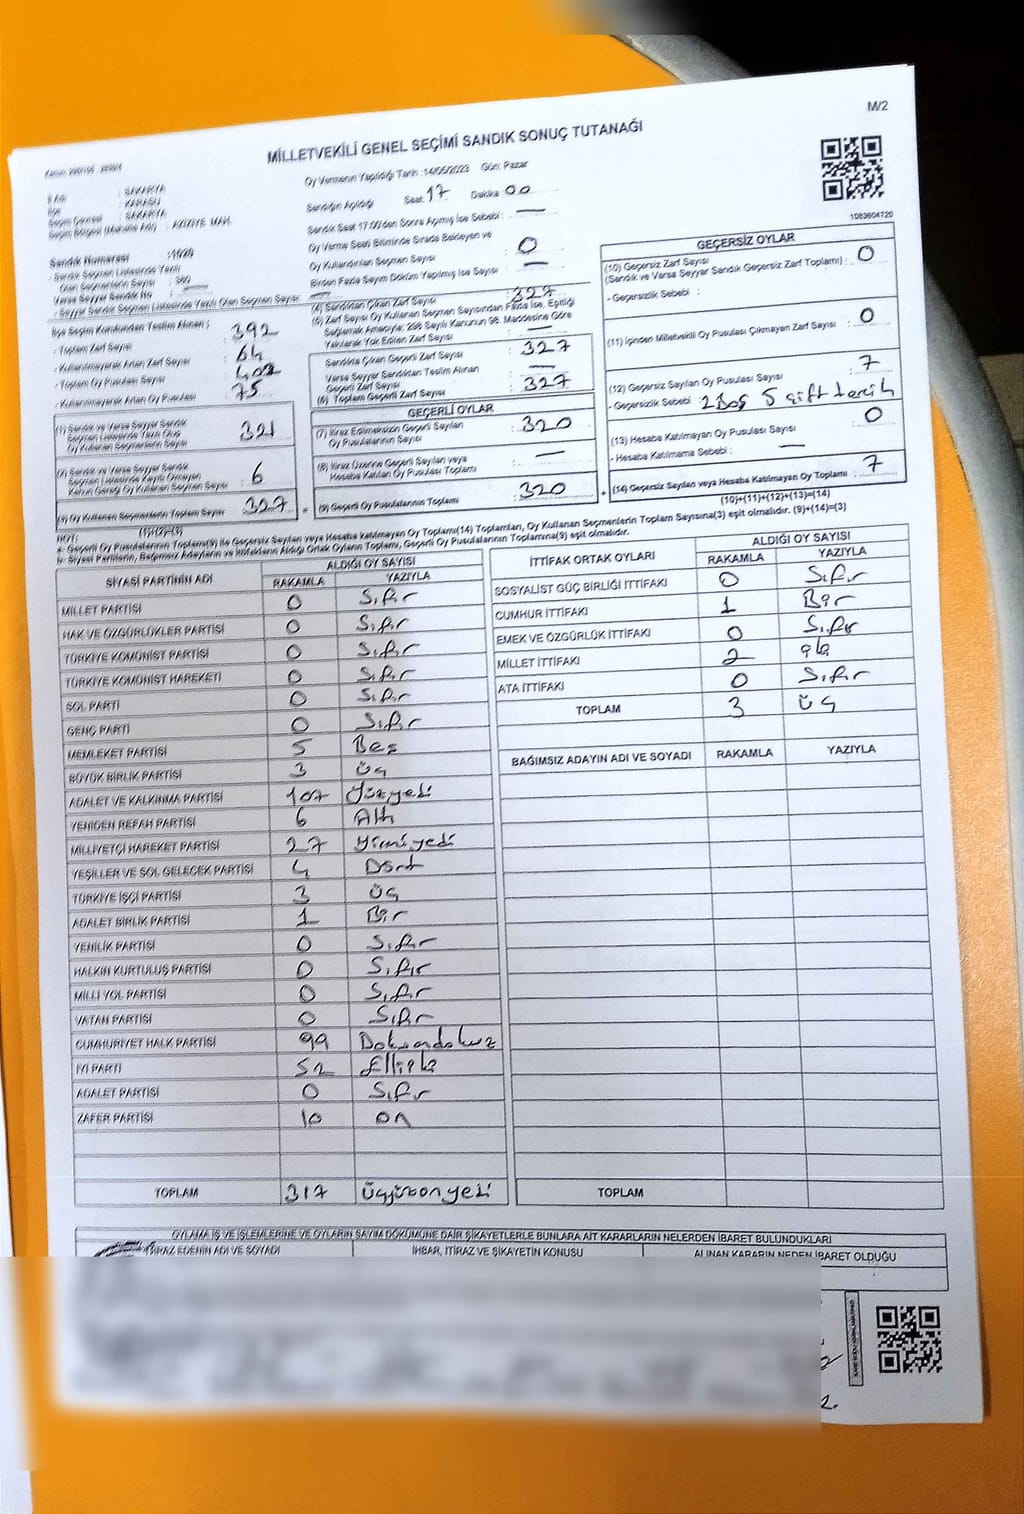 M/2
MİLLETVEKİLİ GENEL SEÇİMİ SANDIK SONUÇ TUTANAĞI
İl Adı : SAKARYA
İlçe : KARASU
Seçim Çevresi : SAKARYA
Seçim Bölgesi (Mahalle Adı) : AZİZİYE MAH.
Sandık Numarası : 1020
- Sandık Seçmen Listesinde Yazılı
Olan Seçmenlerin Sayısı : 380
Varsa Seyyar Sandık No : —
- Seyyar Sandık Seçmen Listesinde Yazılı Olan Seçmen Sayısı : —
Oy Vermenin Yapıldığı Tarih : 14/05/2023 Gün: Pazar
Sandığın Açıldığı Saat: 17 Dakika: 00
Sandık Saat 17:00'den Sonra Açılmış İse Sebebi : —
Oy Verme Saati Bitiminde Sırada Bekleyen ve
Oy Kullandırılan Seçmen Sayısı : 0
Birden Fazla Sayım Döküm Yapılmış İse Sayısı : —
1083604720
İlçe Seçim Kurulundan Teslim Alınan ;
- Toplam Zarf Sayısı : 392
- Kullanılmayarak Artan Zarf Sayısı : 64
- Toplam Oy Pusulası Sayısı : 402
- Kullanılmayarak Artan Oy Pusulası : 75
(1) Sandık ve Varsa Seyyar Sandık
Seçmen Listesinde Yazılı Olup
Oy Kullanan Seçmenlerin Sayısı : 321
(2) Sandık ve Varsa Seyyar Sandık
Seçmen Listesinde Kaydı Olmayan
Kanun Gereği Oy Kullanan Seçmen Sayısı : 6
(3) Oy Kullanan Seçmenlerin Toplam Sayısı : 327
(1)+(2)=(3)
(4) Sandıktan Çıkan Zarf Sayısı : 327
(5) Zarf Sayısı Oy Kullanan Seçmen Sayısından Fazla İse, Eşitliği
Sağlamak Amacıyla; 298 Sayılı Kanunun 98. Maddesine Göre
Yakılarak Yok Edilen Zarf Sayısı : —
Sandıkta Çıkan Geçerli Zarf Sayısı : 327
Varsa Seyyar Sandıktan Teslim Alınan
Geçerli Zarf Sayısı : —
(6) Toplam Geçerli Zarf Sayısı : 327
GEÇERLİ OYLAR
(7) İtiraz Edilmeksizin Geçerli Sayılan
Oy Pusulalarının Sayısı : 320
(8) İtiraz Üzerine Geçerli Sayılan veya
Hesaba Katılan Oy Pusulası Toplamı : —
= (9) Geçerli Oy Pusulalarının Toplamı : 320
GEÇERSİZ OYLAR
(10) Geçersiz Zarf Sayısı
(Sandık ve Varsa Seyyar Sandık Geçersiz Zarf Toplamı) : 0
- Geçersizlik Sebebi :
(11) İçinden Milletvekili Oy Pusulası Çıkmayan Zarf Sayısı : 0
(12) Geçersiz Sayılan Oy Pusulası Sayısı : 7
- Geçersizlik Sebebi : 2 Boş 5 çift tercih
(13) Hesaba Katılmayan Oy Pusulası Sayısı : 0
- Hesaba Katılmama Sebebi : —
+ (14) Geçersiz Sayılan veya Hesaba Katılmayan Oy Toplamı : 7
(10)+(11)+(12)+(13)=(14)
NOT:
a- Geçerli Oy Pusulalarının Toplamı(9) ile Geçersiz Sayılan veya Hesaba Katılmayan Oy Toplamı(14) Toplamları, Oy Kullanan Seçmenlerin Toplam Sayısına(3) eşit olmalıdır. (9)+(14)=(3)
b- Siyasi Partilerin, Bağımsız Adayların ve İttifakların Aldığı Ortak Oyların Toplamı, Geçerli Oy Pusulalarının Toplamına(9) eşit olmalıdır.
SİYASİ PARTİNİN ADI ALDIĞI OY SAYISI
RAKAMLA YAZIYLA
MİLLET PARTİSİ 0 Sıfır
HAK VE ÖZGÜRLÜKLER PARTİSİ 0 Sıfır
TÜRKİYE KOMÜNİST PARTİSİ 0 Sıfır
TÜRKİYE KOMÜNİST HAREKETİ 0 Sıfır
SOL PARTİ 0 Sıfır
GENÇ PARTİ 0 Sıfır
MEMLEKET PARTİSİ 5 Beş
BÜYÜK BİRLİK PARTİSİ 3 üç
ADALET VE KALKINMA PARTİSİ 107 Yüzyedi
YENİDEN REFAH PARTİSİ 6 Altı
MİLLİYETÇİ HAREKET PARTİSİ 27 Yirmiyedi
YEŞİLLER VE SOL GELECEK PARTİSİ 4 Dört
TÜRKİYE İŞÇİ PARTİSİ 3 üç
ADALET BİRLİK PARTİSİ 1 Bir
YENİLİK PARTİSİ 0 Sıfır
HALKIN KURTULUŞ PARTİSİ 0 Sıfır
MİLLİ YOL PARTİSİ 0 Sıfır
VATAN PARTİSİ 0 Sıfır
CUMHURİYET HALK PARTİSİ 99 Doksandokuz
İYİ PARTİ 52 Elliiki
ADALET PARTİSİ 0 Sıfır
ZAFER PARTİSİ 10 on
TOPLAM 317 Üçyüzonyedi
İTTİFAK ORTAK OYLARI ALDIĞI OY SAYISI
RAKAMLA YAZIYLA
SOSYALİST GÜÇ BİRLİĞİ İTTİFAKI 0 Sıfır
CUMHUR İTTİFAKI 1 Bir
EMEK VE ÖZGÜRLÜK İTTİFAKI 0 Sıfır
MİLLET İTTİFAKI 2 iki
ATA İTTİFAKI 0 Sıfır
TOPLAM 3 üç
BAĞIMSIZ ADAYIN ADI VE SOYADI RAKAMLA YAZIYLA
TOPLAM
OYLAMA İŞ VE İŞLEMLERİNE VE OYLARIN SAYIM DÖKÜMÜNE DAİR ŞİKAYETLERLE BUNLARA AİT KARARLARIN NELERDEN İBARET BULUNDUKLARI
İTİRAZ EDENİN ADI VE SOYADI İHBAR, İTİRAZ VE ŞİKAYETİN KONUSU ALINAN KARARIN NEDEN İBARET OLDUĞU